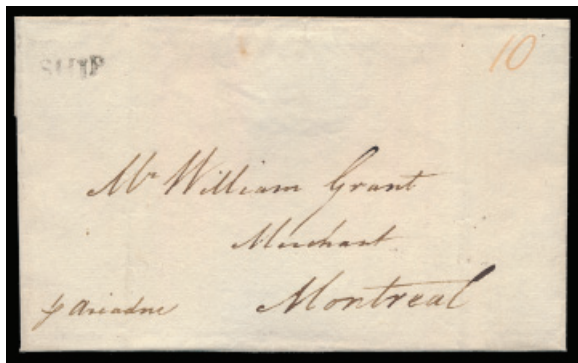 SHIP
10
Mr William Grant
Merchant
Montreal
p Ariadne